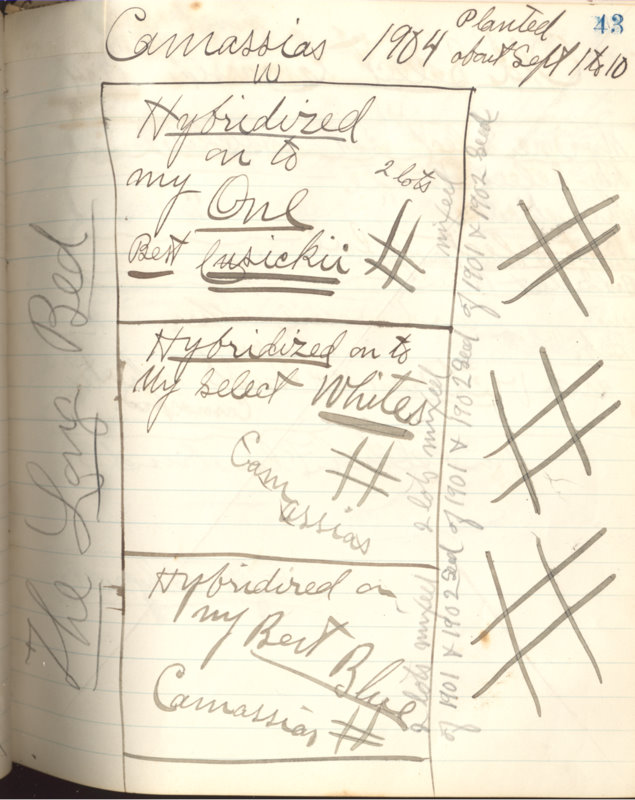 43
Camassias 1904 Planted
about Sept 1 to 10
W
Hybridized
on to
my One 2 lots
Best Cusickii #
Hybridized on to
My Select Whites
#
Cam
assias
Hybridized on
my Best Blue
Camassias #
The Long Bed
mixed
seed of 1901 & 1902
2 lots mixed
seed of 1901 & 1902
2 lots mixed
seed of 1901 & 1902
#
#
#